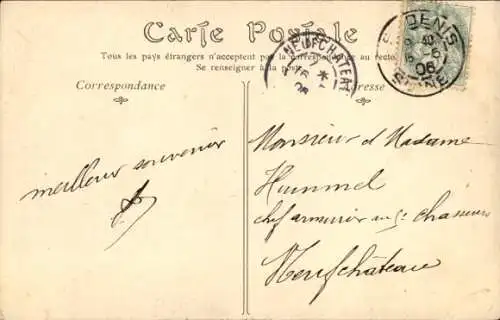 Carte Postale
Tous les pays étrangers n'acceptent pas la correspondance au recto.
Se renseigner à la poste
Correspondance
Adresse
NEUFCHATEAU
06
DENIS
6
06
SEINE
meilleur souvenir
Monsieur et Madame
Hummel
chef armurier au 5e chasseurs
Neufchâteau